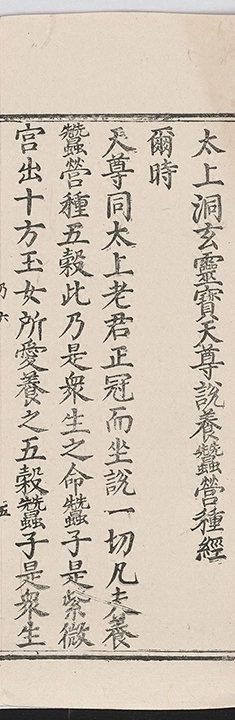 太上洞玄靈寶天尊說養蠶營種經
爾時
天尊同太上老君正冠而坐說一切凡夫養
蠶營種五穀此乃是衆生之命蠶子是紫微
宮出十方玉女所愛養之五穀蠶子是衆生
乃六
五